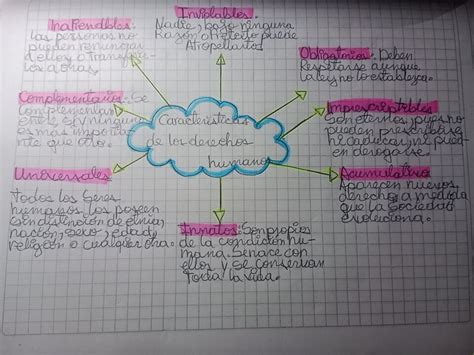 Inviolables:
Nadie, bajo ninguna
Razón o Pretexto puede
Atropellarlos
Obligatorios: Deben
Respetarse aunque
la ley no lo establezca.
Imprescriptibles
Son eternos, pues no
pueden prescribirse,
ni caducar, ni pue
en derogarse.
Acumulativo
Aparecen nuevos
derecho a medida
que la sociedad
evoluciona.
Innatos: Son propios
de la condición hu-
mana. Se nace con
ellos y se conservan
Toda la vida.
Universales
Todos los seres
humanos los poseen
sin distinción de
nación, sexo, edad,
religión o cualquier otra.
Complementarios: Se
complementan
entre sí, y ninguno
es más importan
te que otro.
las personas no
pueden renunciar
a ellos o transferir
los a otras.
Características
de los derechos
humanos